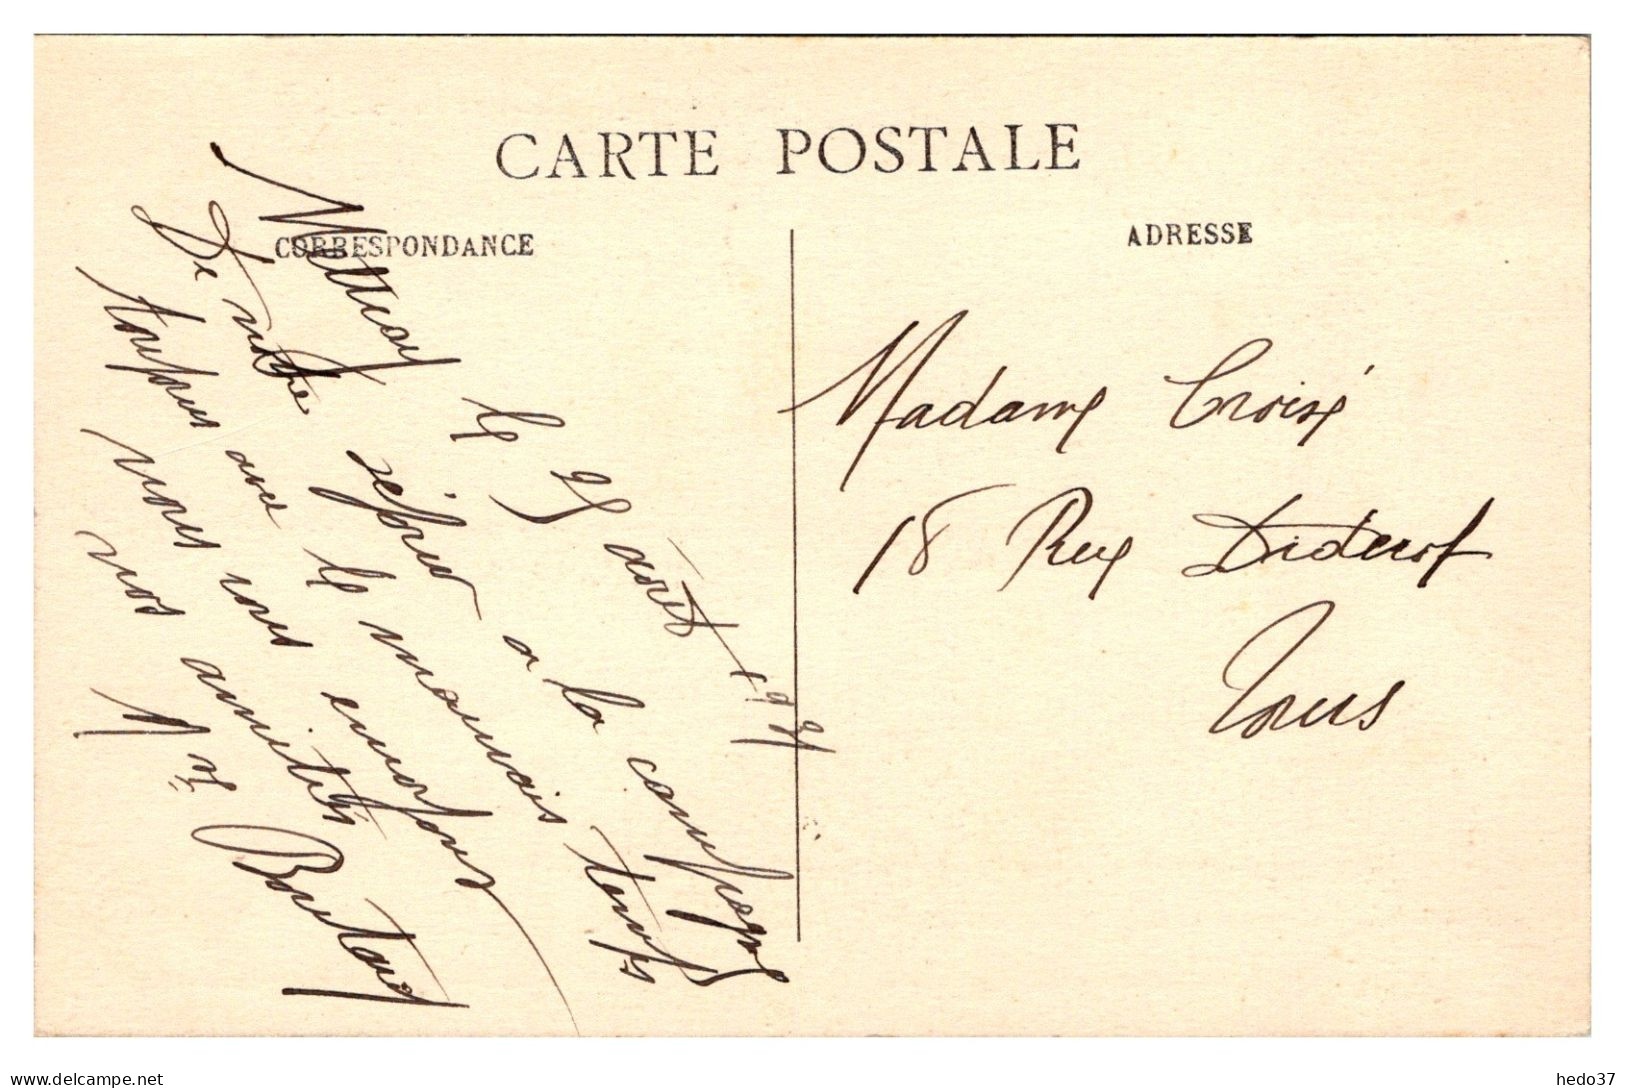 CARTE POSTALE
CORRESPONDANCE
ADRESSE
Mettray le 25 août 1931
De notre séjour à la campagne
toujours avec le mauvais temps
nous vous envoyons
nos amitiés
Mme
Madame Croisé
18 Rue Diderot
Tours
www.delcampe.net
hedo37